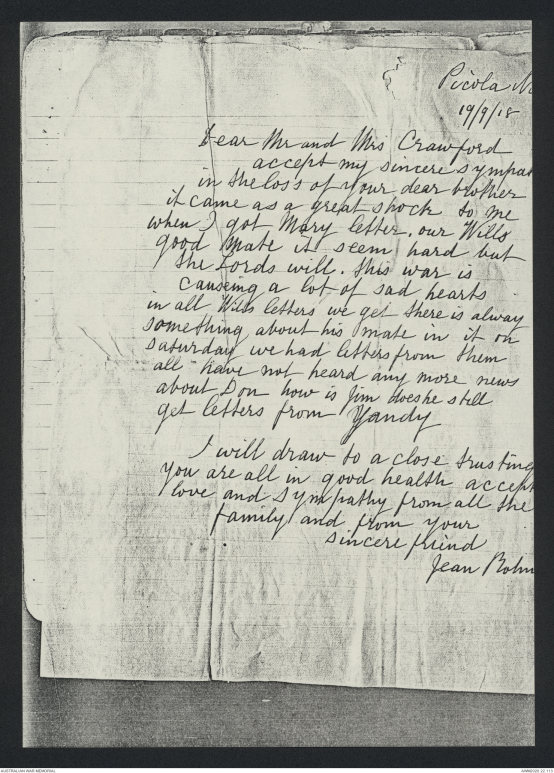 Picola N
19/9/18
Dear Mr and Mrs Crawford
accept my sincere sympat
in the loss of your dear brother
it came as a great shock to me
when I got Mary letter, our Wills
good mate it seem hard but
the Lords will. this war is
causeing a lot of sad hearts
in all Wills letters we get there is alway
something about his mate in it on
Saturday we had letters from them
all have not heard any more news
about Don how is Jim does he still
get letters from Yandy
I will draw to a close trusting
you are all in good health accept
love and sympathy from all the
family and from your
sincere friend
Jean
AUSTRALIAN WAR MEMORIAL